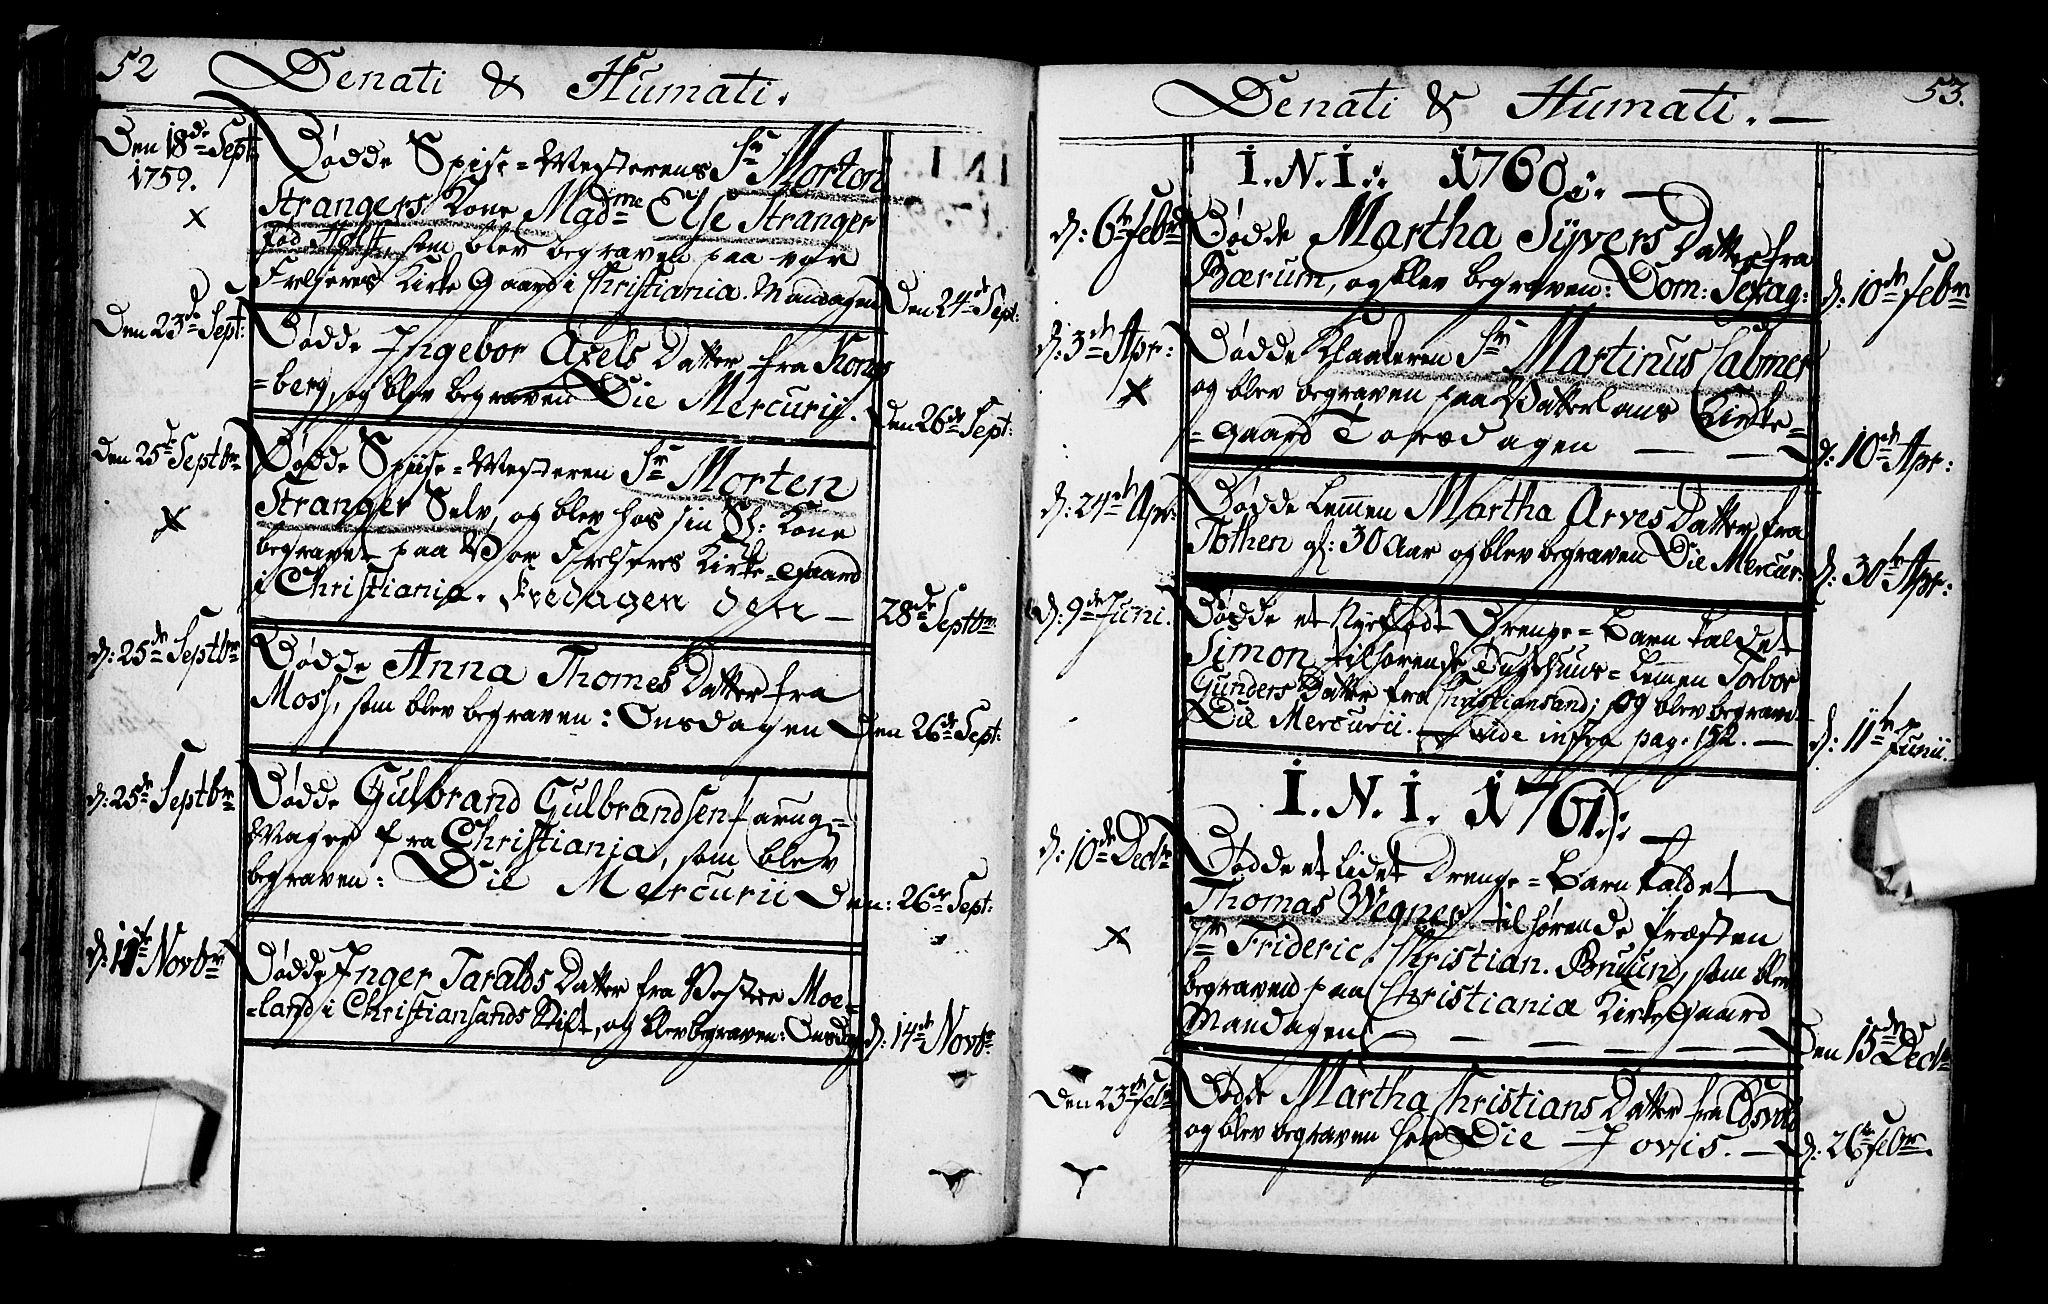 52
Denati & Humati.
Den 18de Sept:
1759.
x
Døde Spise=Mesterens Sr Morton
Strangers Kone Madme Else Stranger
fød Holst, som blev begraven paa vor
Frelseres Kirke Gaard i Christiania. Mandagen
Den 24de Sept:
Den 23de Sept:
Døde Ingebor Axels Datter fra Kongs
=berg, og blev begraven Die Mercurij.
Den 26de Sept:
Den 25de Septbr
x
Døde Spiise=Mesteren Sr Morten
Stranger Selv, og blev hos sin Sl: Kone
begravet paa Vor Frelseres Kirke=Gaard
i Christiania. Fredagen den —
28de Septbr
d: 25de Septbr
Døde Anna Thomes Datter fra
Moss, som blev begraven: Onsdagen
Den 26de Sept:
d: 25de Septbr
Døde Gulbrand Gulbrandsen
Mager fra Christiania, som blev
begraven: Die Mercurii
Den: 26de Sept:
d: 11te Novbr
Døde Inger Taralds Datter fra Vestre Moe=
=land i Christiansands Stift, og blev begraven: Onsdag
d: 14de Novbr
53.
Denati & Humati. —
I. N. I. 1760.
d: 6te Febr
Døde Martha Syvers Datter fra
Bærum, og blev begraven: Dom: Sexag:
d: 10de Febr
d: 3de Apr:
x
Døde Klokkeren Sr Martinus Calmer
og blev begraven paa Vatterlans Kirke=
=gaard Torsdagen — — —
d: 10de Apr:
d: 24de Apr:
Døde Lemmen Martha Arves Datter, fra
Tothen gl: 30 Aar og blev begraven Die Mercur:
d: 30te Apr:
d: 9de Juni.
Døde et Nyefødt Drenge=Barn kaldet
Simon tilhørende Tugthuus=Lemmen Torbor
Gunders Datter fra Christiansand; og blev begraven
Die Mercurii. — vide infra pag. 152. —
d: 11te Junii.
I. N. I. 1761.
d: 10de Decbr
x
Døde et lidet Drenge=Barn kaldet
Thomas Wegner tilhørende Præsten
Hr Frideric. Christian. Bruun, som blev
begraven paa Christianiæ Kirke Gaard
Mandagen — — — — — —
Den 15de Decbr
Den 23de Febr
Døde Martha Christians Datter fra Edsvold
og blev begraven her Die Jovis. —
d: 26de Febr.